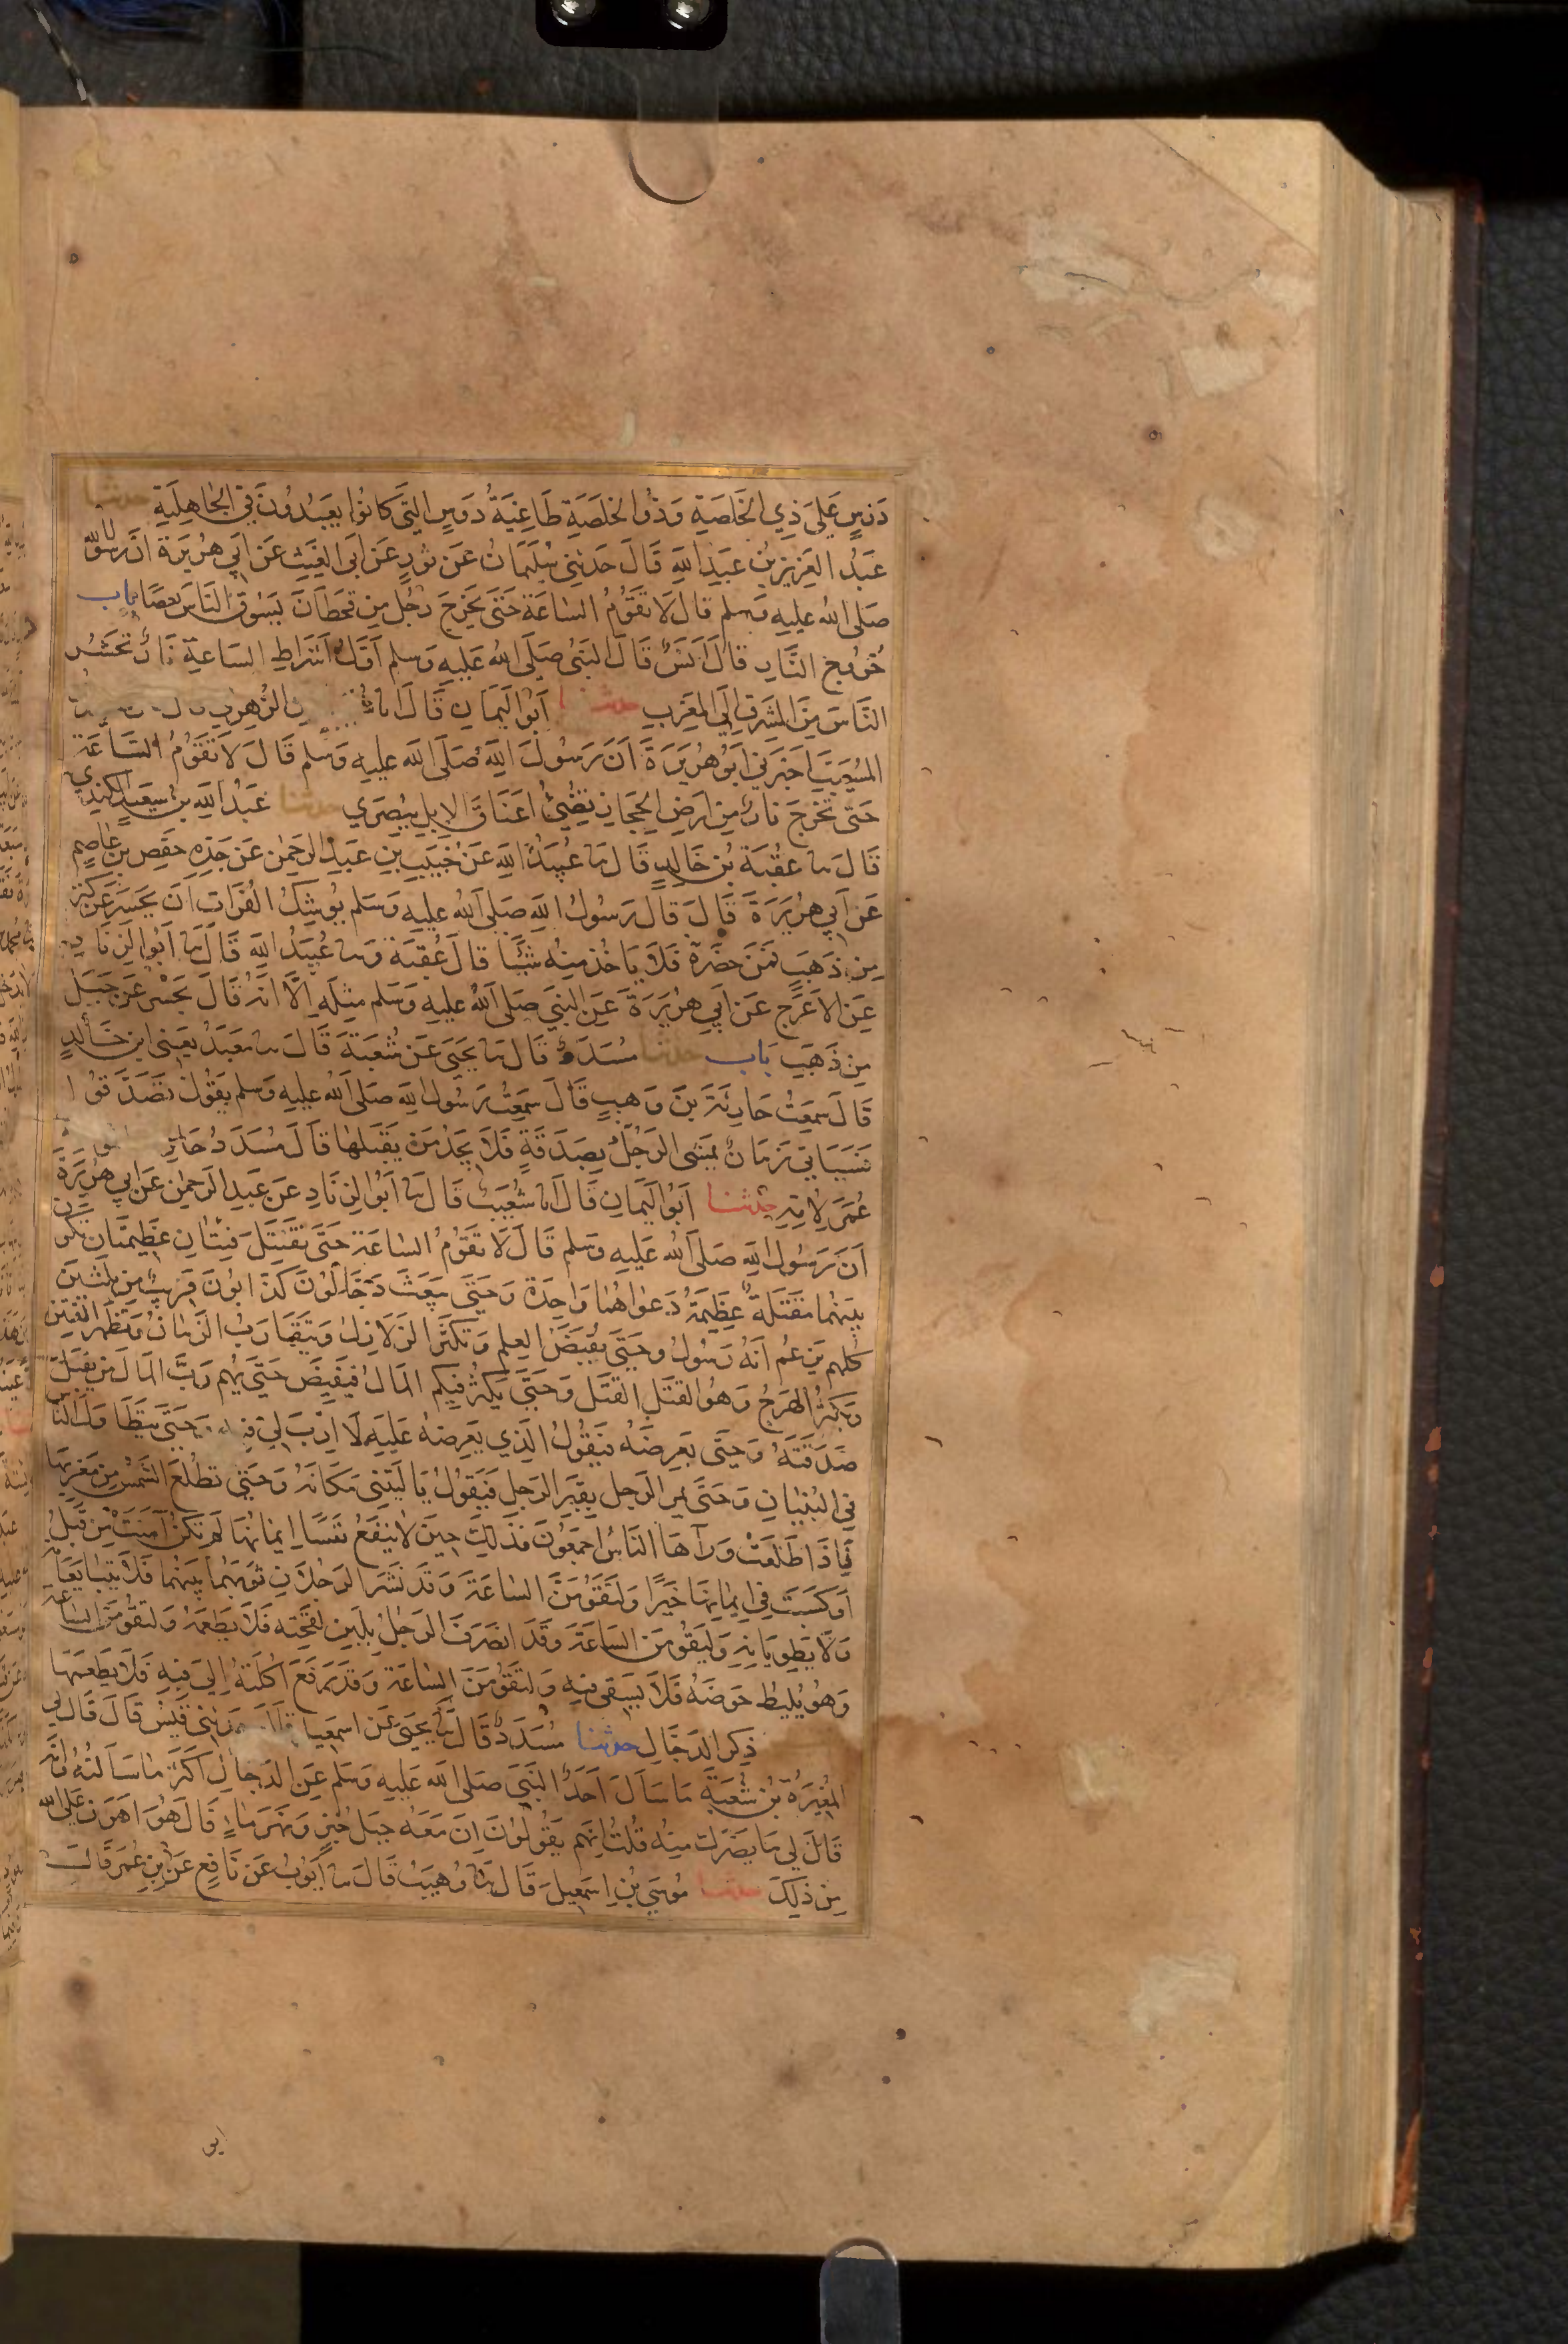 دَوْسٍ عَلَى ذِي الخَلَصَةِ وَذُو الخَلَصَةِ طَاغِيَةُ دَوْسٍ الَّتِي كَانُوا يَعْبُدُونَ فِي الجَاهِلِيَةِ حدثنا
عَبْدُ العَزِيزِ بْنُ عَبْدِ اللهِ قَالَ حَدَّثَنِي سُلَيْمَانُ عَنْ ثَوْرٍ عَنْ أَبِي الغَيْثِ عَنْ أَبِي هُرَيْرَةَ أَنَّ رَسُولَ الله
صَلَى الله عَلَيهِ وَسلم قَالَ لَا تَقُومُ السَّاعَةُ حَتَّى يَخْرُجَ رَجُلٌ مِنْ قَحْطَانَ يَسُوقُ النَّاسَ بعَصَا باب
خُرُوجِ النَّارِ قَالَ أَنَسٌ قَالَ النَّبِيُّ صَلَى الله عَلَيهِ وَسلم أَوَّلُ أَشْرَاطِ السَّاعَةِ نَارٌ تَحْشُرُ
النَّاسَ مِنَ المَشْرِقِ إِلَى المَغْرِبِ حدثنا أَبُو اليَمَانِ قَالَ انا الزُّهْرِي
المُسَيَّبِ أَخْبَرَنِي أَبُو هُرَيْرَةَ أَنَّ رَسُولَ اللهِ صَلَى الله عَلَيهِ وَسلم قَالَ لَا تَقُومُ السَّاعَةُ
حَتَّى تَخْرُجَ نَارٌ مِنْ أَرْضِ الحِجَازِ تُضِيْءُ أَعْنَاقَ الإِبِلِ بِبُصْرَي حدثنا عَبْدُ اللهِ بنُ سَعِيدٍ الكِنْدِي
قَالَ نا عُقْبَةُ بْنُ خَالِدٍ قَالَ نا عُبَيْدُ اللهِ عَنْ خُبَيْبِ بْنِ عَبْدِ الرَحْمٰنِ عَنْ جَدِهِ حَفْصِ بنِ عَاصِمٍ
عَنْ أَبِي هُرَيْرَةَ قَالَ قَالَ رَسُولُ اللهِ صَلَى الله عَلَيهِ وَسَلم يُوشِكُ الفُرَاتُ أَنْ يَحْسِرَ عَنْ كَنْزٍ
مِنْ ذَهَبٍ فَمَنْ حَضَرَهُ فَلَا يَأخُذْ مِنْهُ شَيْئًا قَالَ عُقْبَةُ وَنا عُبَيْدُ اللهِ قَالَ نا أَبُو الزِنَادِ
عَنِ الأَعْرَجِ عَنْ أَبِي هُرَيْرَةَ عَنِ النَّبِيِّ صَلَى الله عَلَيهِ وَسَلم مِثْلَهُ إِلَّا أَنَّهُ قَالَ يَحْسِرُ عَنْ جَبَلٍ
مِنْ ذَهَبٍ بَاب حدثنا مُسَدَّدٌ قَالَ نا يَحْيَى عَنْ شُعْبَةَ قَالَ نا مَعْبَدٌ يَعْنِي ابنَ خَالِدٍ
قَالَ سَمِعْتُ حَارِثَةَ بْنَ وَهْبٍ قَالَ سَمِعْتُ رَسُولَ اللهِ صَلَى الله عَلَيهِ وَسلم يَقُولُ تَصَدَّقُوا
فَسَيَأتِي زَمَانٌ يَمْشِي الرَجُلُ بِصَدَقَةٍ فَلَا يَجِدُ مَنْ يَقْبَلُهَا قَالَ مُسَدَّدٌ حَارِثَةُ
عُمَرَ لِأُمِّهِ حدثنا أَبُو اليَمَانِ قَالَ انا شُعَيْبٌ قَالَ نا أَبُو الزِنَادِ عَنْ عَبْدِ الرَحْمٰنِ عَنْ أَبِي هُرَيْرَةَ
أَنَّ رَسُولَ اللهِ صَلَى الله عَلَيهِ وَسلم قَالَ لَا تَقُومُ السَّاعَةُ حَتَّى تَقْتَتِلَ فِئَتَانِ عَظِيمَتَانِ تَكُونُ
بَيْنَهُمَا مَقْتَلَةٌ عَظِيمَةٌ دَعْوَاهُمَا وَاحِدَةٌ وَحَتَّى يُبْعَثَ دَجَّالُونَ كَذَّابُونَ قَرِيبٌ مِنْ ثَلٰثِينَ
كُلُّهُمْ يَزْعُمُ أَنَّهُ رَسُولُ وَحَتَّى يُقْبَضَ العِلْمُ وَتَكْثُرَ الزَلَازِلُ وَيَتَقَارَبَ الزَمَانُ وَتَظْهَرَ الفِتَنُ
وَيَكْثُرَ الهَرْجُ وَهُوَ القَتْلُ القَتْلُ وَحَتَّى يَكْثُرَ فِيكُمُ المَالُ فَيَفِيضَ حَتَّى يُهِمَّ رَبَّ المَالِ مَنْ يَقْبَلُ
صَدَقَتَهُ وَحَتَّى يَعْرِضَهُ فَيَقُولُ الَّذِي يَعْرِضُهُ عَلَيْهِ لَا أَرَبَ لِي فِيهِ وَحَتَّى يَتَطَاوَلَ النَّاسُ
فِي البُنْيَانِ وَحَتَّى يَمُرَّ الرَجُلُ بِقَبْرِ الرَجُلِ فَيَقُولُ يَا لَيْتَنِي مَكَانَهُ وَحَتَّى تَطْلُعَ الشَّمْسُ مِنْ مَغْرِبِهَا
فَإِذَا طَلَعَتْ وَرَآهَا النَّاسُ أَجْمَعُونَ فَذَلِكَ حِينَ لَا يَنْفَعُ نَفْسًا إِيمَانُهَا لَمْ تَكُنْ آمَنَتْ مِنْ قَبْلُ
أَوْ كَسَبَتْ فِي إِيمَانِهَا خَيْرًا وَلَتَقُومَنَّ السَّاعَةُ وَقَدْ نَشَرَ الرَجُلَانِ ثَوْبَهُمَا بَيْنَهُمَا فَلَا يَتَبَايَعَانِهِ
وَلَا يَطْوِيَانِهِ وَلَيَقُومَنَّ السَاعَةُ وَقَدِ انْصَرَفَ الرَجُلُ بِلَبَنِ لِقْحَتِهِ فَلَا يَطْعَمُهُ وَلَتَقُومَنَّ السَّاعَةُ
وَهُوَ يُلِيطُ حَوْضَهُ فَلَا يَسْقِي فِيهِ وَلَتَقُومَنَّ السَّاعَةُ وَقَدْ رَفَعَ أُكْلَتَهُ إِلَى فِيهِ فَلَا يَطْعَمُهَا
ذِكْرِ الدَجَّالِ حدثنا مُسَدَّدٌ قَالَ نا يَحْيَى عَنْ اسمعيل قَيْسٌ قَالَ قَالَ لِي
المُغِيرَةُ بْنُ شُعْبَةَ مَا سَأَلَ أَحَدٌ النَّبِيَّ صَلَى الله عَلَيهِ وَسَلَم عَنِ الدَجَّالِ أَكْثَرَ مَا سَأَلْتُهُ وَإِنَّهُ
قَالَ لِي مَا يَضُرُّكَ مِنْهُ قُلْتُ إِنَّهُمْ يَقُولُونَ إِنَّ مَعَهُ جَبَلَ خُبْزٍ وَنَهَرَ مَاءٍ قَالَ هُوَ أَهْوَنُ عَلَى الله
مِنْ ذَلِكَ حدثنا مُوسَى بْنُ اسمَعِيلَ قَالَ نا وُهَيْبٌ قَالَ نا أَيُّوبُ عَنْ نَافِعٍ عَنِ ابْنِ عُمَرَ قَالَ